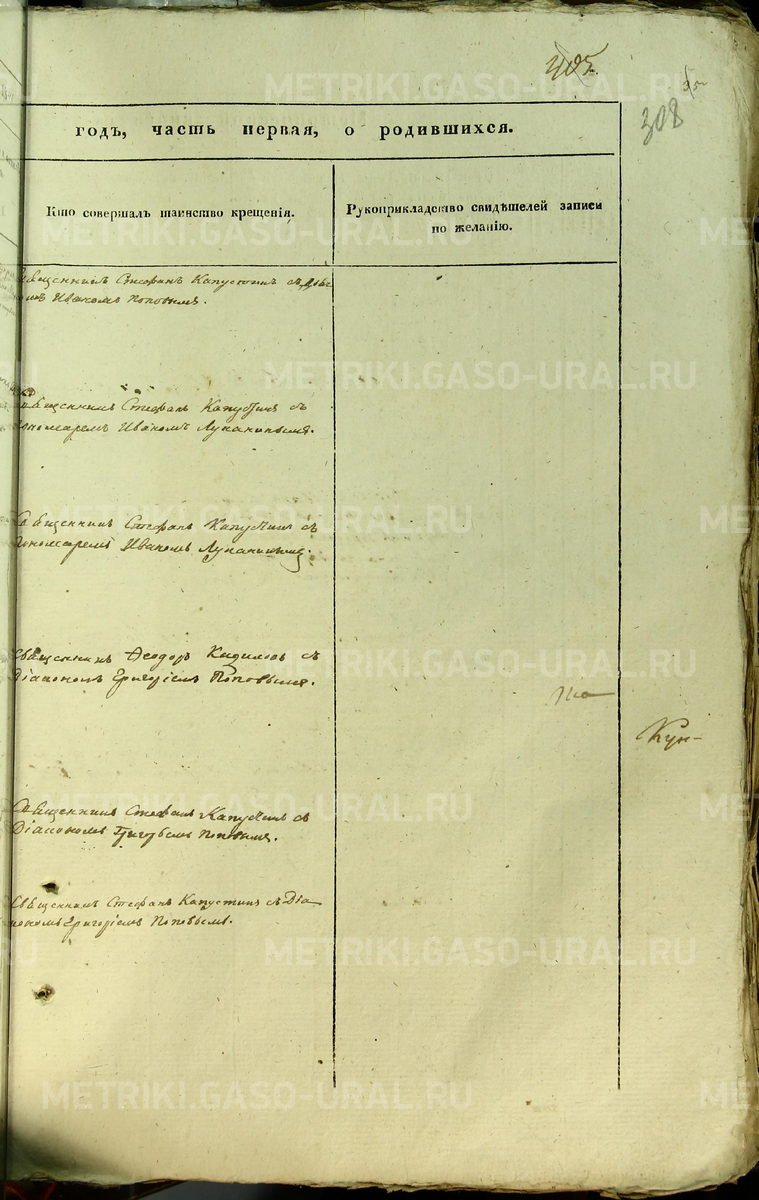 405.
35
308
годъ, часть первая, о родившихся.
Кто совершалъ таинство крещенія.
Рукоприкладство свидѣтелей записи
по желанію.
Священникъ Стефанъ Капустинъ съ
Иваномъ Поповымъ.
Священникъ Стефанъ Капустинъ съ
пономаремъ Иваномъ Лупанинымъ.
Священникъ Стефанъ Капустинъ съ
пономаремъ Иваномъ Лупанинымъ.
Священникъ Ѳеодоръ съ
Діакономъ Григоріемъ Поповымъ.
по
Кун-
Священникъ Стефанъ Капустинъ съ
Діакономъ Григорьемъ Поповымъ.
Священникъ Стефанъ Капустинъ съ Діа
кономъ Григоріемъ Поповымъ.
METRIKI.GASO-URAL.RU